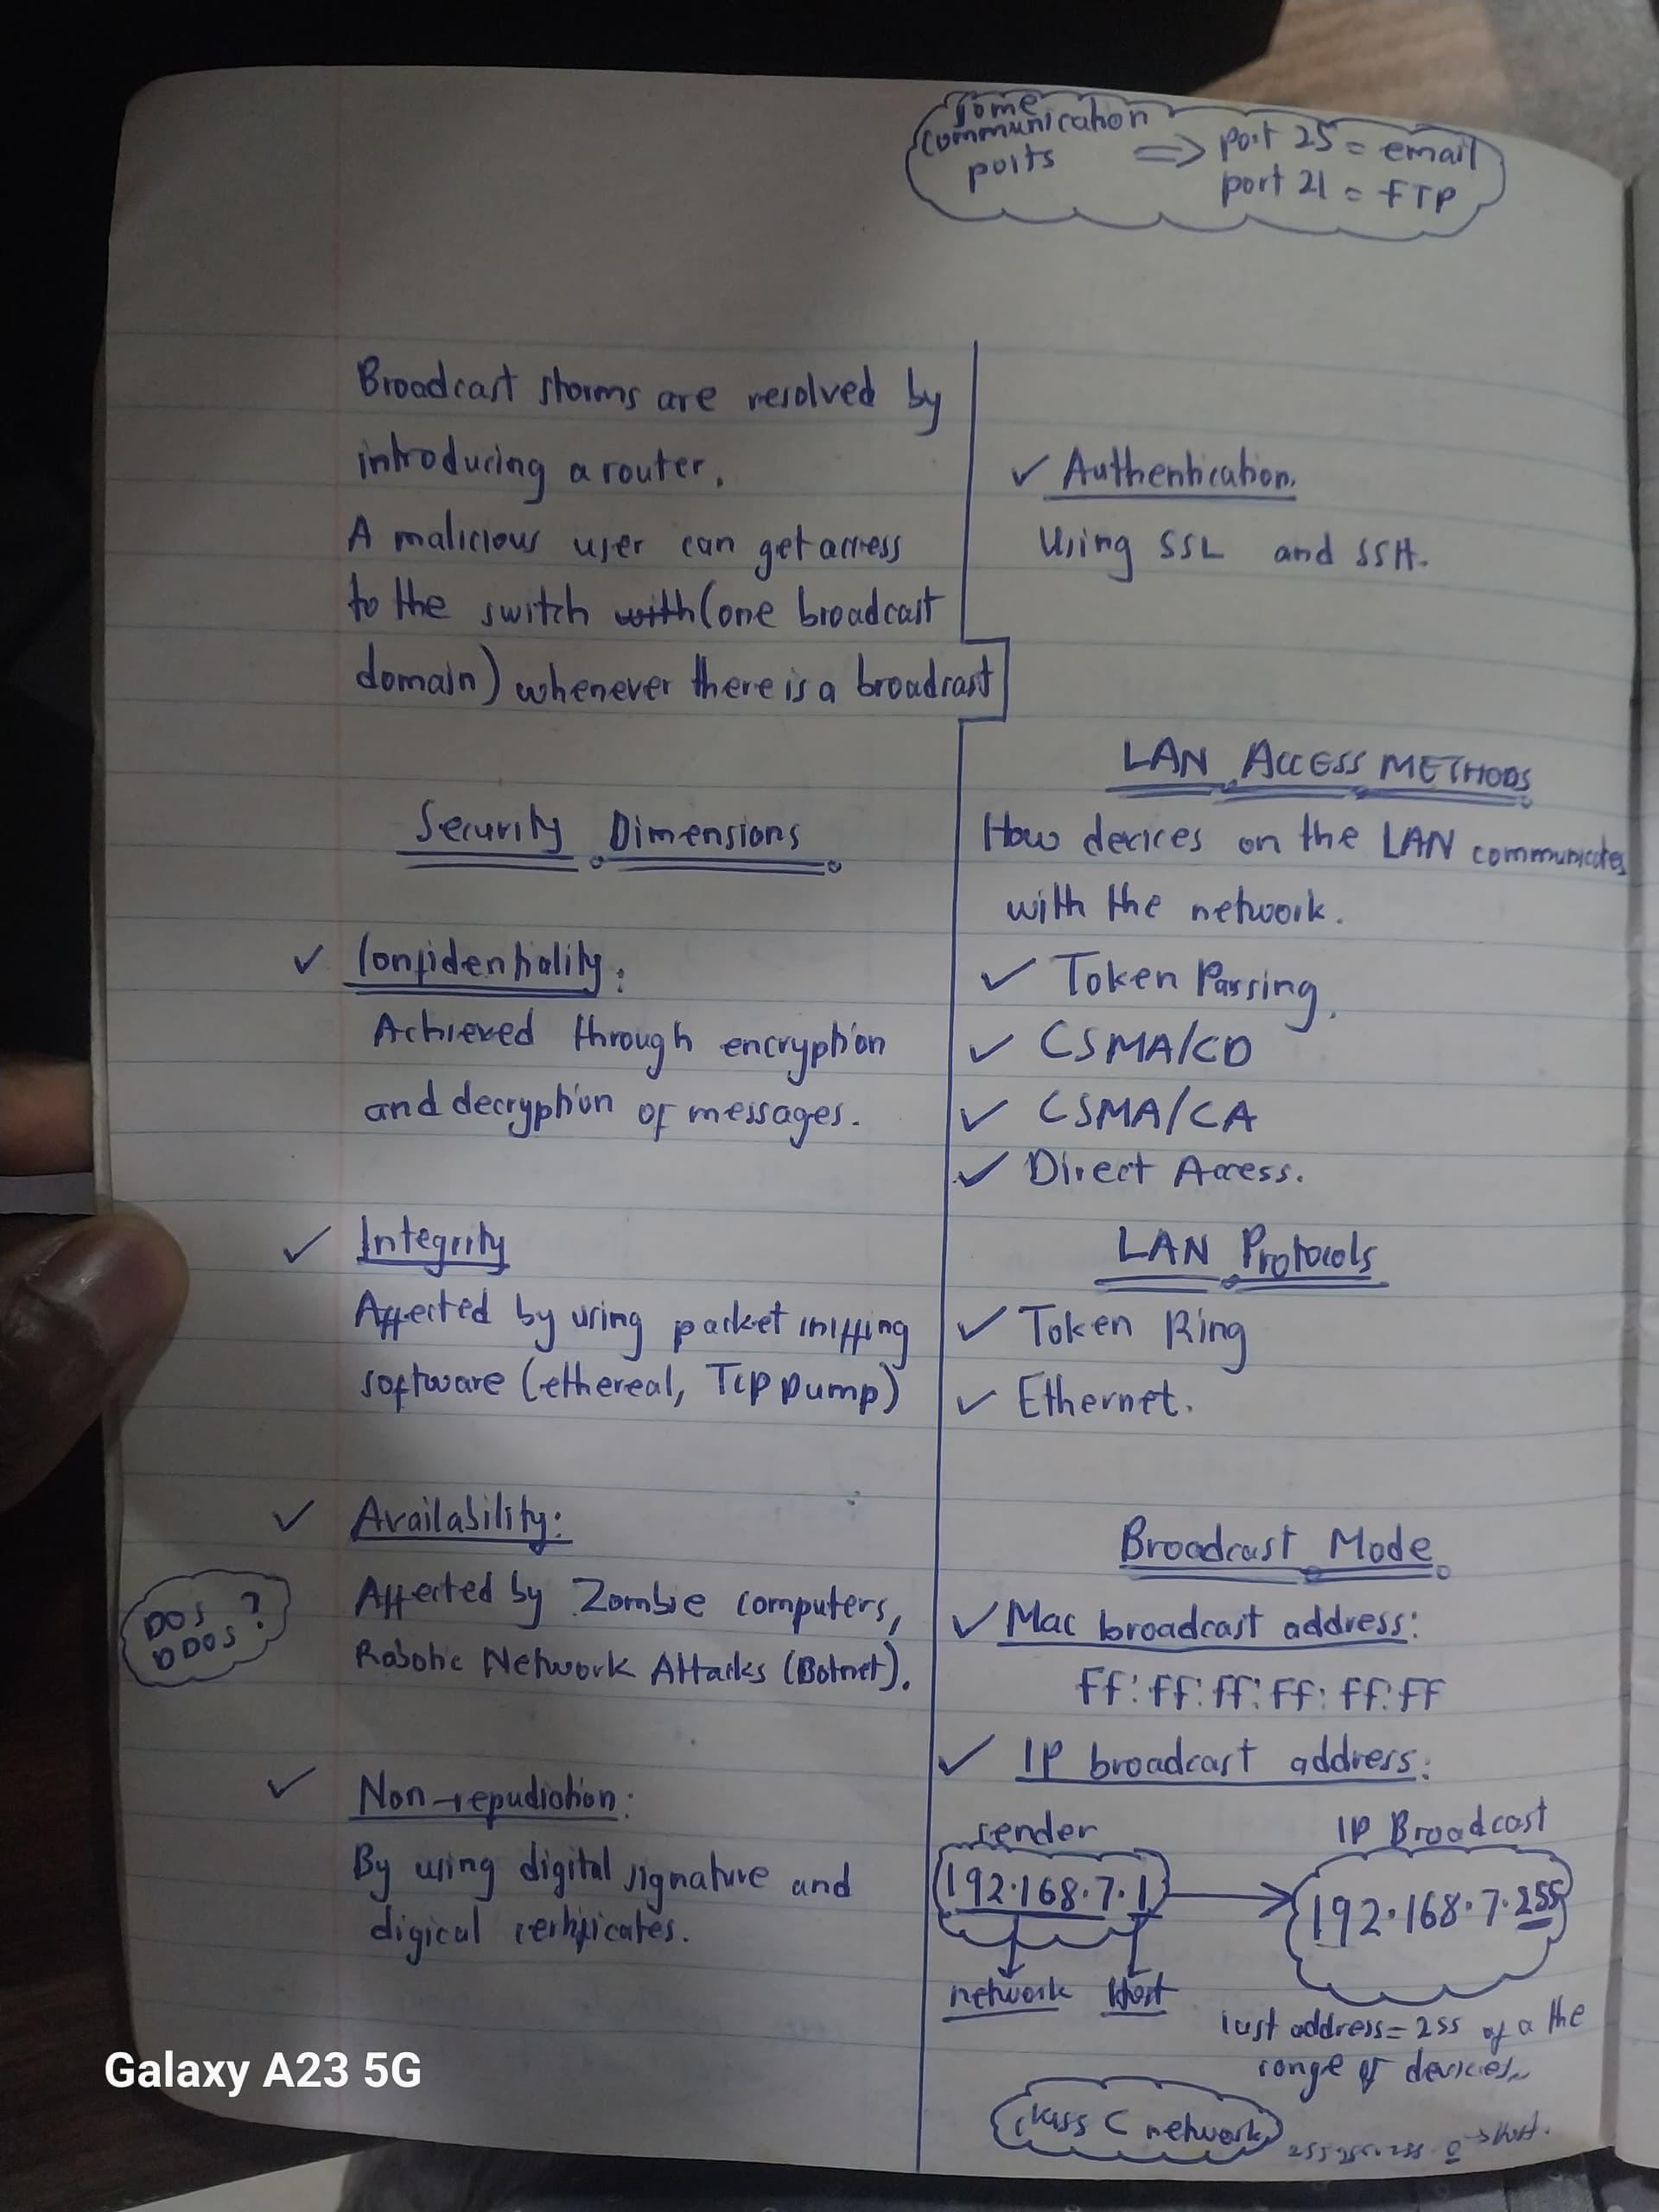 Some
communication
ports => port 25 = email
port 21 = FTP
Broadcast storms are resolved by
introducing a router.
A malicious user can get access
to the switch with (one broadcast
domain) whenever there is a broadcast
Security Dimensions
✓ Confidentiality:
Achieved through encryption
and decryption of messages.
✓ Integrity
Affected by using packet sniffing
software (ethereal, TCP Dump)
✓ Availability:
DOS ?
DDOS
Affected by Zombie computers,
Robotic Network Attacks (Botnet).
✓ Non-repudiation:
By using digital signature and
digical certificates.
✓ Authentication.
Using SSL and SSH.
LAN ACCESS METHODS
How devices on the LAN communicates
with the network.
✓ Token Passing.
✓ CSMA/CD
✓ CSMA/CA
✓ Direct Access.
LAN Protocols
✓ Token Ring
✓ Ethernet.
Broadcast Mode
✓ Mac broadcast address:
FF:FF:FF:FF:FF:FF
✓ IP broadcast address:
sender IP Broadcast
192.168.7.1 → 192.168.7.255
network Host
last address = 255 of a the
range of devices
Class C network 255.255.255.0 → Host.
Galaxy A23 5G